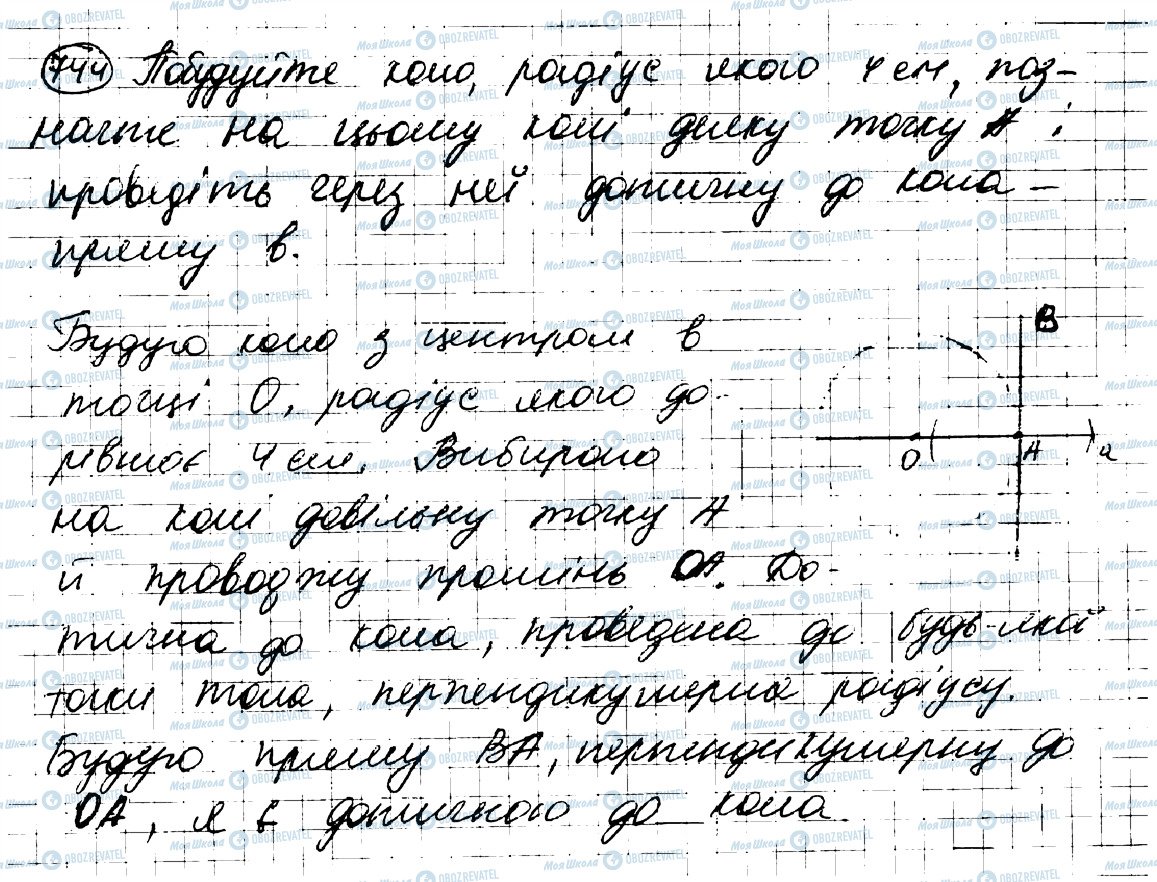 744 Побудуйте коло, радіус якого 4 см, поз-
начте на цьому колі деяку точку А і
проведіть через неї дотичну до кола –
пряму в.
Будую коло з центром в
точці О, радіус якого до-
рівнює 4 см. Вибираю
на колі довільну точку А
й проводжу промінь ОА. До-
тична до кола, проведена до будь-якої
точки кола, перпендикулярна радіусу.
Будую пряму ВА, перпендикулярну до
ОА, я є дотичною до кола.
В
О А а
Моя Школа OBOZREVATEL